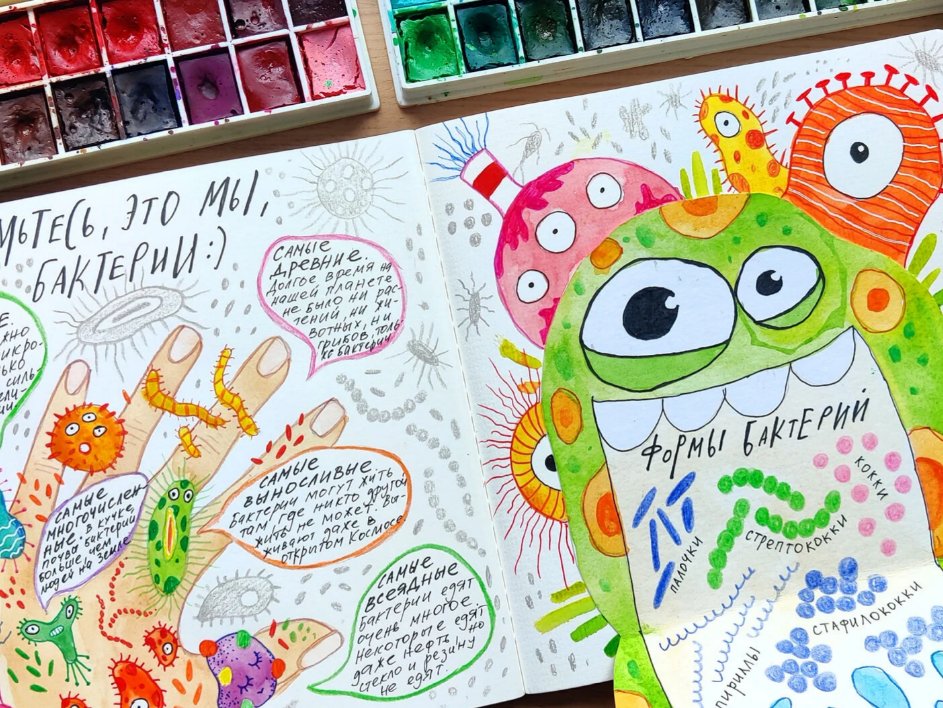 ЭТО МЫ,
БАКТЕРИИ:)
САМЫЕ
ДРЕВНИЕ.
ДОЛГОЕ ВРЕМЯ НА
НАШЕЙ ПЛАНЕТЕ
НЕ БЫЛО НИ РАС-
ТЕНИЙ, НИ ЖИ-
ВОТНЫХ, НИ
ГРИБОВ, ТОЛЬ-
КО БАКТЕРИИ
САМЫЕ
МНОГОЧИСЛЕН-
НЫЕ. В КУЧКЕ
ПОЧВЫ БАКТЕРИЙ
БОЛЬШЕ, ЧЕМ
ЛЮДЕЙ НА ЗЕМЛЕ
САМЫЕ
ВЫНОСЛИВЫЕ.
БАКТЕРИИ МОГУТ ЖИТЬ
ТАМ, ГДЕ НИКТО ДРУГОЙ
ЖИТЬ НЕ МОЖЕТ. ВЫ-
ЖИВАЮТ ДАЖЕ В
ОТКРЫТОМ КОСМОСЕ
САМЫЕ
ВСЕЯДНЫЕ
БАКТЕРИИ ЕДЯТ
ОЧЕНЬ МНОГОЕ,
НЕКОТОРЫЕ ЕДЯТ
ДАЖЕ НЕФТЬ, НО
СТЕКЛО И РЕЗИНУ
НЕ ЕДЯТ.
ФОРМЫ БАКТЕРИЙ
ПАЛОЧКИ
СТРЕПТОКОККИ
КОККИ
СТАФИЛОКОККИ
ПИРИЛЛЫ